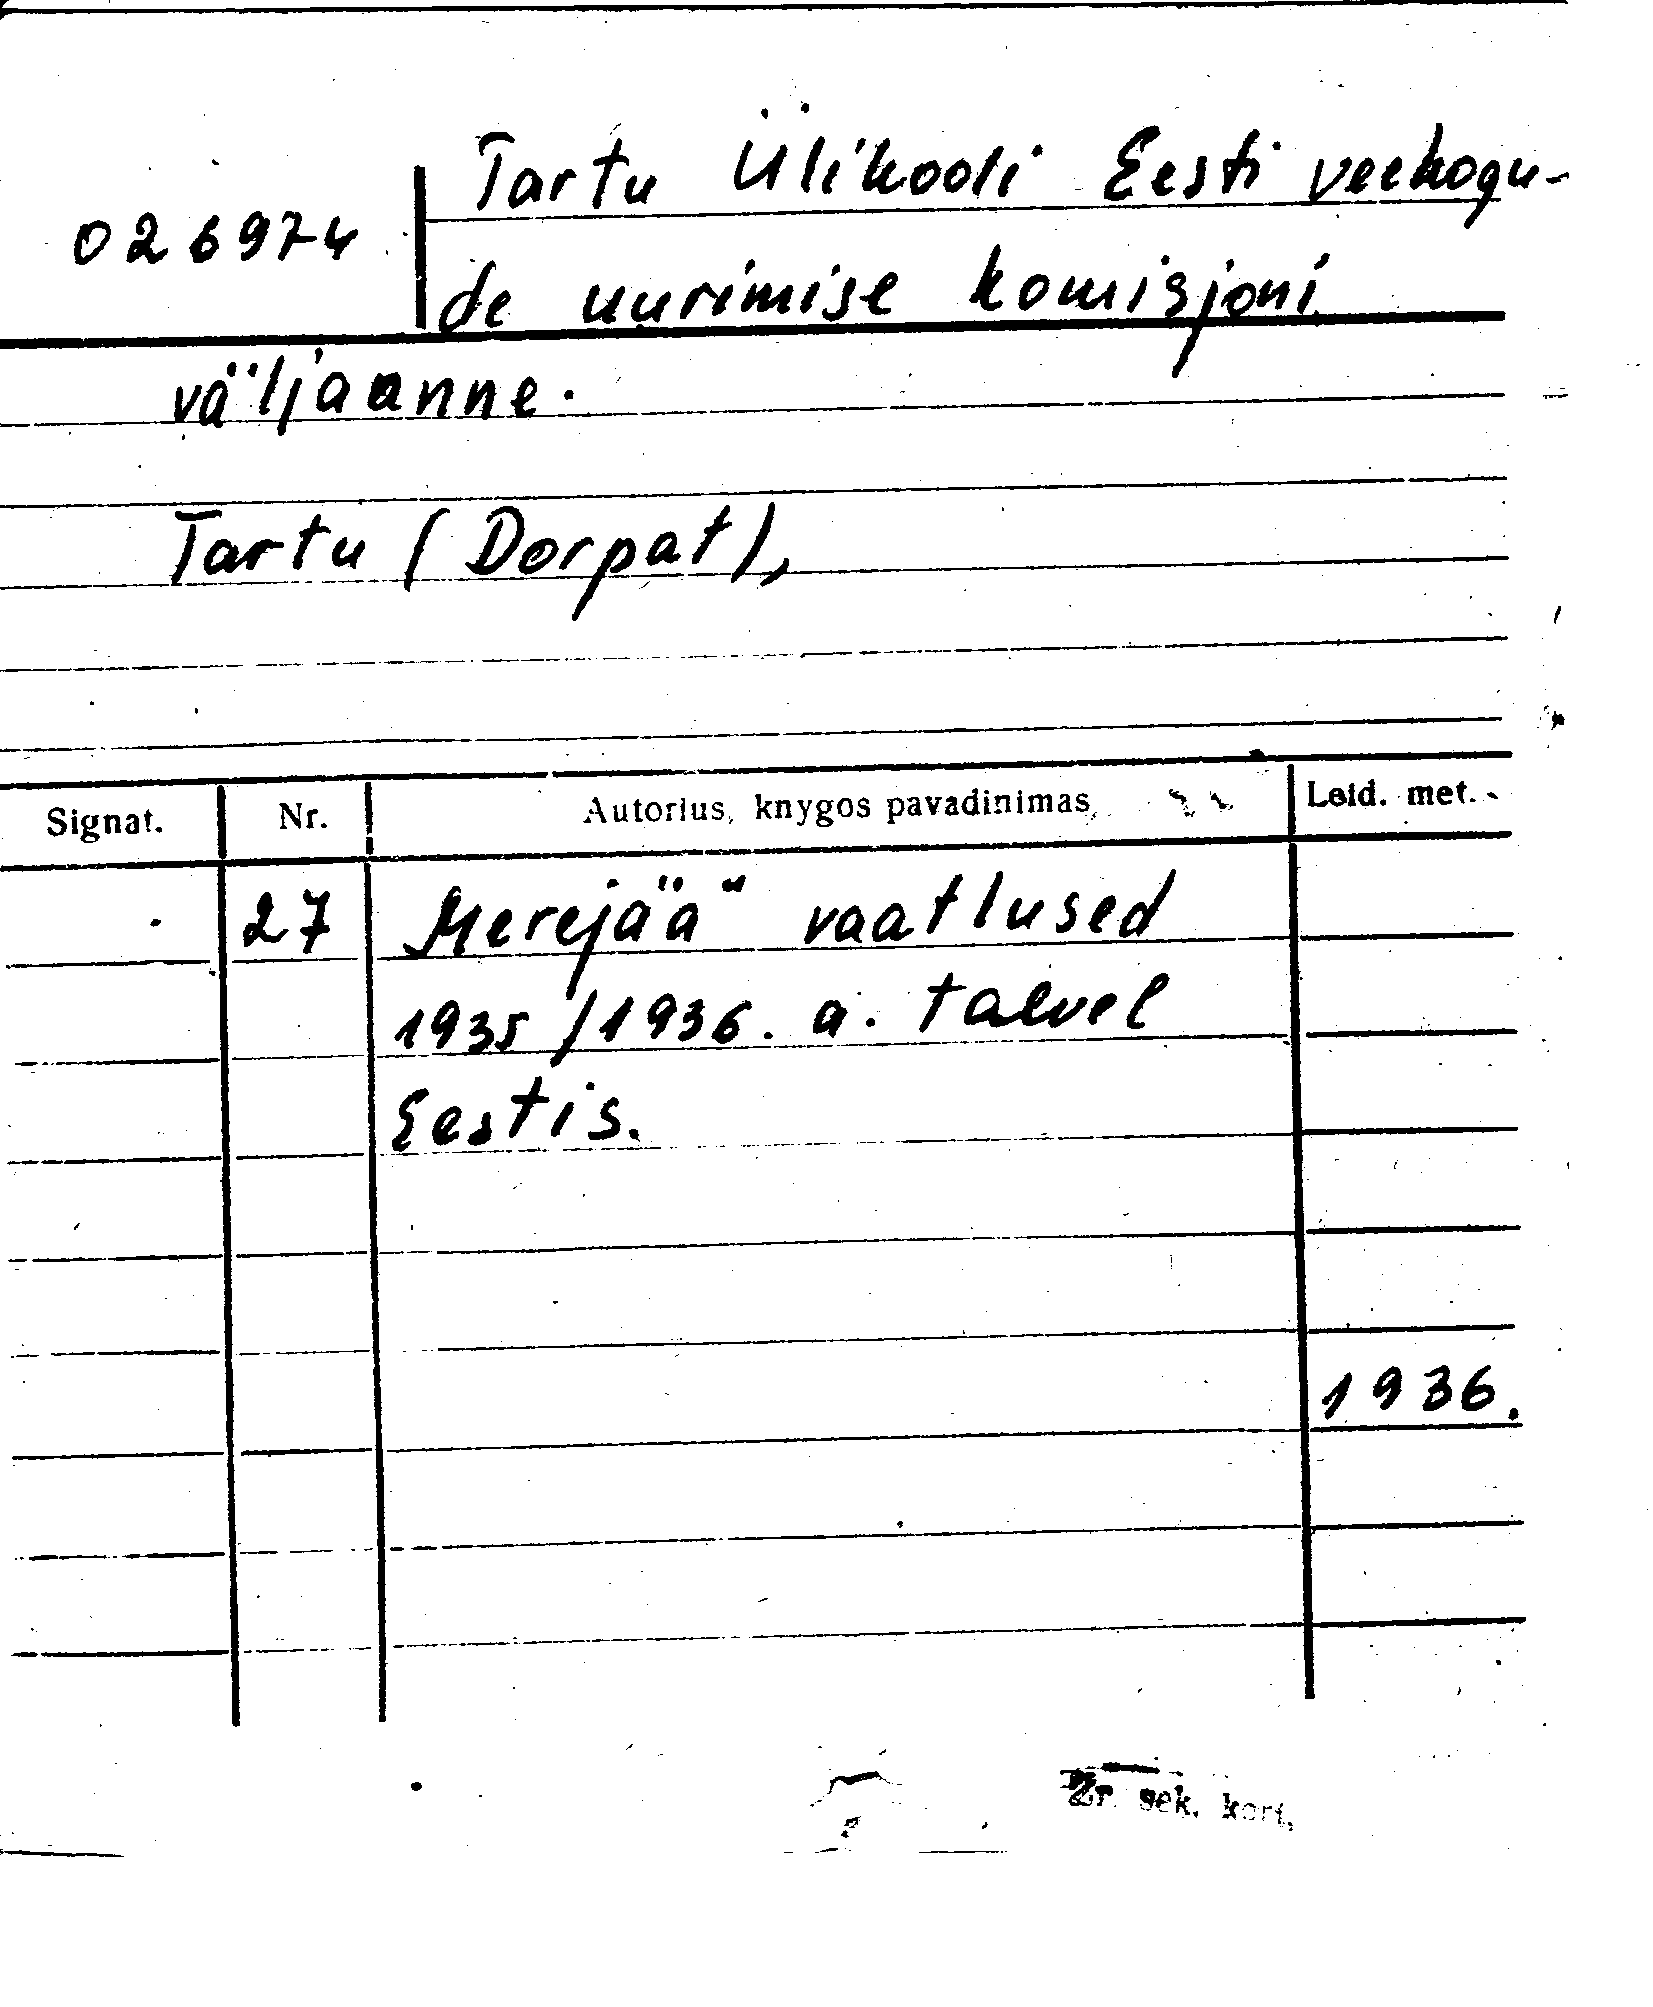 Tartu Ülikooli Eesti veekogu-
026974
de uurimise komisjoni
väljaanne.
Tartu (Dorpat),
Signat. Nr. Autorius, knygos pavadinimas Leid. met.
27 Merejää vaatlused
1935/1936. a. talvel
Eestis.
1936.
Žr. sek. kort.